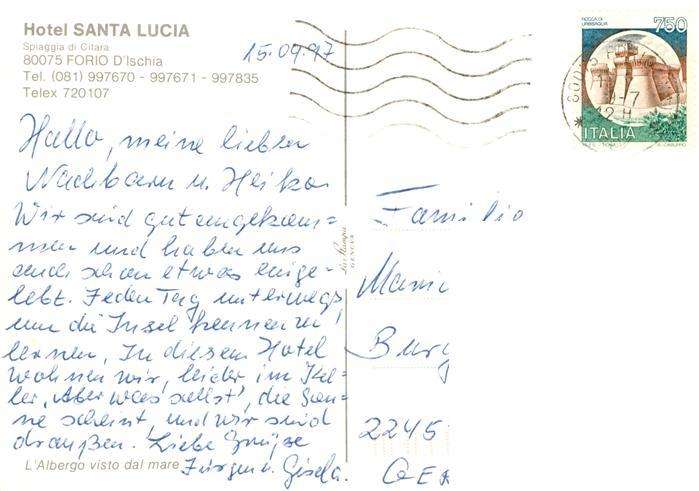 Hotel SANTA LUCIA
Spiaggia di Citara
80075 FORIO D'Ischia
Tel. (081) 997670 - 997671 - 997835
Telex 720107
15.09.97
Hallo, meine lieben
Nachbarn u. Heiko.
Wir sind gut angekom=
men und haben uns
auch schon etwas einge-
lebt. Jeden Tag unterwegs
um die Insel kennen zu
lernen. In diesem Hotel
wohnen wir, leider im Kel-
ler, Aber was sollst', die Son-
ne scheint, und wir sind
draußen. Liebe Grüße
Jürgen u. Gisela.
L'Albergo visto dal mare
ROCCA DI
URBISAGLIA
750
ITALIA
Familie
Burg
2245
GER